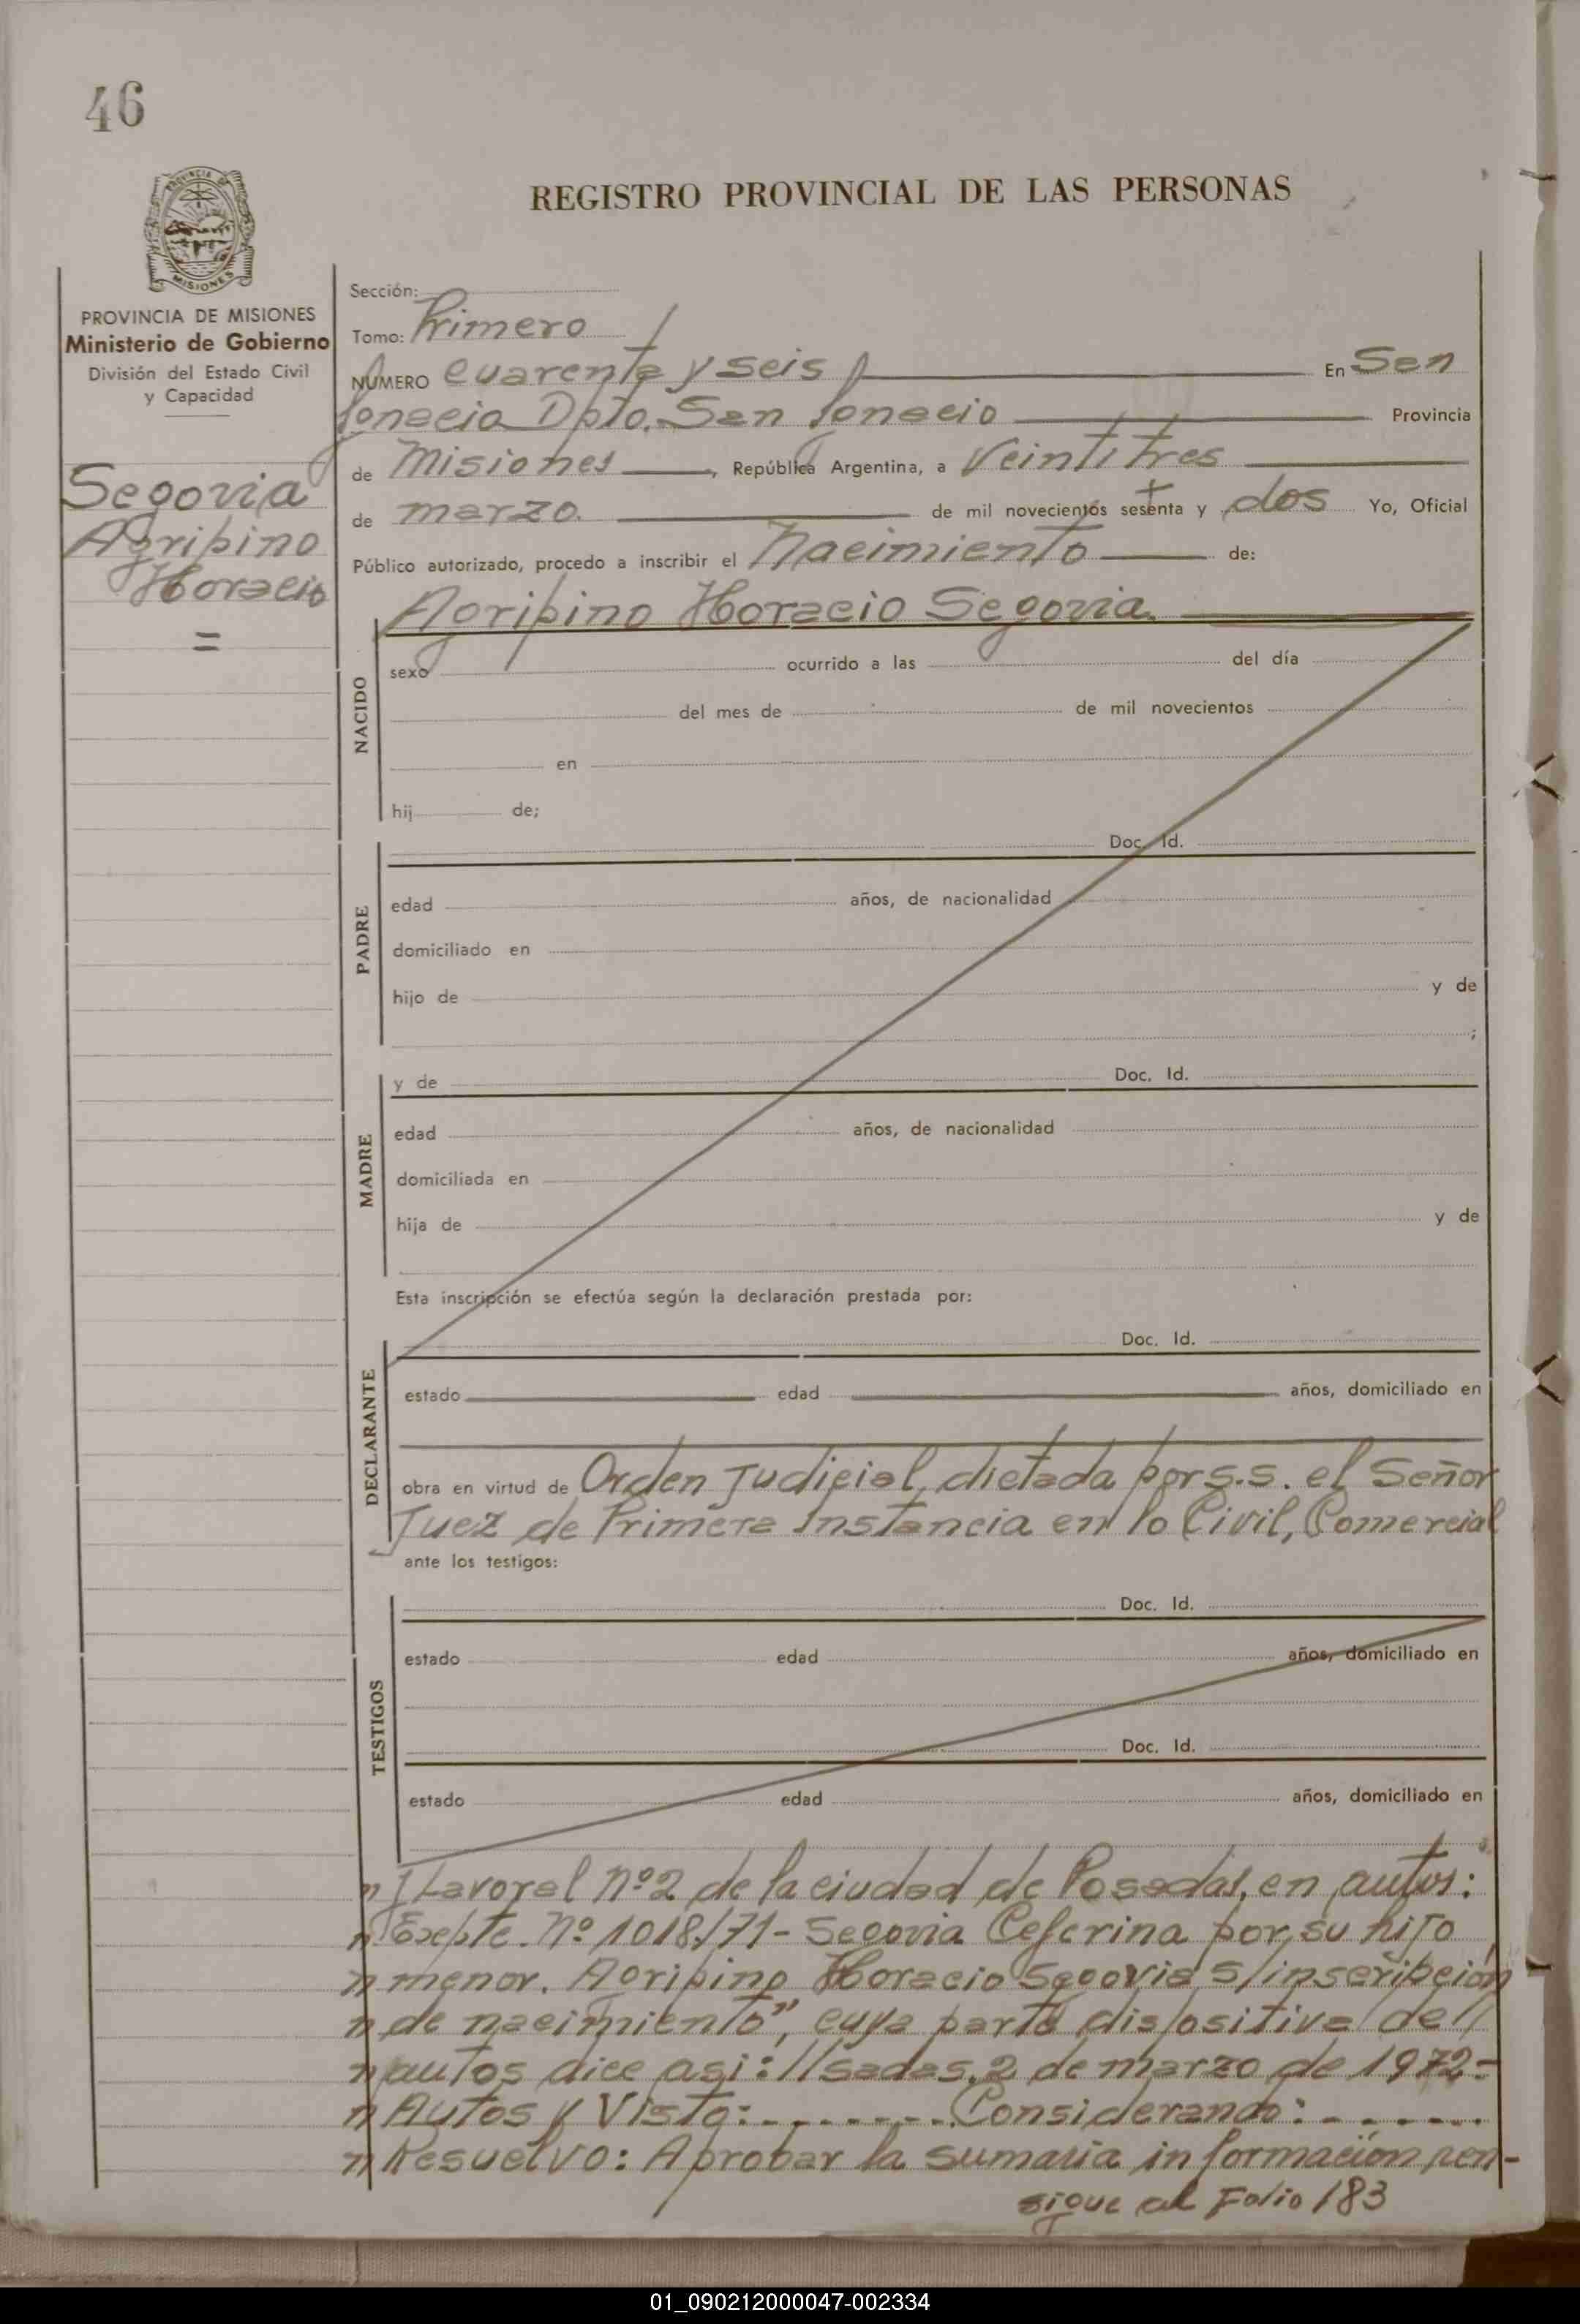 46
PROVINCIA DE
MISIONES
REGISTRO PROVINCIAL DE LAS PERSONAS
PROVINCIA DE MISIONES
Ministerio de Gobierno
División del Estado Civil
y Capacidad
Segovia
Agripino
Horacio
=
Sección:
Tomo: Primero
NÚMERO cuarenta y seis En San
Ignacio Dpto. San Ignacio Provincia
de Misiones, República Argentina, a Veintitres
de marzo. de mil novecientos sesenta y dos Yo, Oficial
Público autorizado, procedo a inscribir el Nacimiento de:
Agripino Horacio Segovia.
NACIDO
sexo ocurrido a las del día
del mes de de mil novecientos
en
hij de;
PADRE
Doc. Id.
edad años, de nacionalidad
domiciliado en
hijo de y de
;
MADRE
y de Doc. Id.
edad años, de nacionalidad
domiciliada en
hija de y de
Esta inscripción se efectúa según la declaración prestada por:
DECLARANTE
Doc. Id.
estado edad años, domiciliado en
obra en virtud de Orden Judicial, dictada por S.S. el Señor
Juez de Primera Instancia en lo Civil, Comercial
ante los testigos:
TESTIGOS
Doc. Id.
estado edad años, domiciliado en
Doc. Id.
estado edad años, domiciliado en
" y Lavoral Nº 2 de la ciudad de Posadas, en autos:
" "Expte. Nº 1018/71- Segovia Ceferina por su hijo
" menor. Agripino Horacio Segovia S/inscripción
" de nacimiento", cuya parte dispositiva de //
" autos dice asi: //sadas, 2 de marzo de 1972-
" Autos y Visto:........ Considerando:......
" Resuelvo: Aprobar la sumaria informacion ren-
sigue al Folio 183
01_090212000047-002334